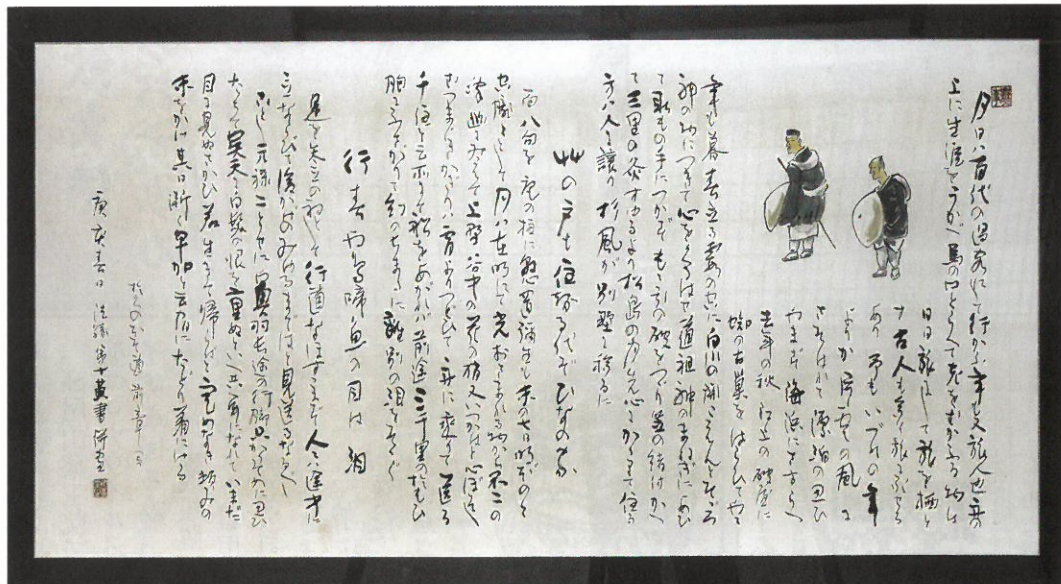 月日は百代の過客にして行かふ年も又旅人也舟の
上に生涯をうかべ馬の口とらへて老をむかふる物は
日日旅にして旅を栖と
す古人も多く旅に死せる
あり予もいづれの年
よりか片雲の風に
さそはれて漂泊の思ひ
やまず海浜にさすらへ
去年の秋江上の破屋に
蜘の古巣をはらひてやゝ
年も暮春立る霞の空に白川の関こえんとそゞろ
神の物につきて心をくるはせ道祖神のまねきにあひ
て取もの手につかずもゝ引の破をつゞり笠の緒付かへ
て三里の灸すゆるより松島の月先心にかゝりて住る
方は人に譲り杉風が別墅に移るに
艸の戸も住替る代ぞひなの家
面八句を庵の柱に懸置弥生も末の七日明ぼのゝ
空朧々として月は在明にて光おさまれる物から不二の
峯幽にみえて上野谷中の花の梢又いつかはと心ぼそし
むつましきかぎりは宵よりつどひて舟に乗て送る
千住と云所にて船をあがれば前途三千里のおもひ
胸にふさがりて幻のちまたに離別の泪をそゝぐ
行春や鳥啼魚の目は泪
是を矢立の初として行道なほすゝまず人々は途中に
立ならびて後かげのみゆるまではと見送るなるべし
ことし元禄二とせにや奥羽長途の行脚只かりそめに思ひ
たちて呉天に白髪の恨を重ぬといへ共耳にふれていまだ
目に見ぬさかひ若生て帰らばと定めなき頼みの
末をかけ其日漸早加と云宿にたどり着にけり
おくのほそ道前章
春日